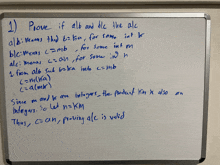 1) Prove if a|b and b|c the a|c
a|b: means that b=ka, for some int k
b|c: means c=mb, for some int m
a|c: means c=an, for some int n
from a|b sub b=ka into c=mb
c=m(ka)
c=a(mk)
Since m and k are integers, the product km is also an
integers. so let n=km
Thus, c=an, proving a|c is valid